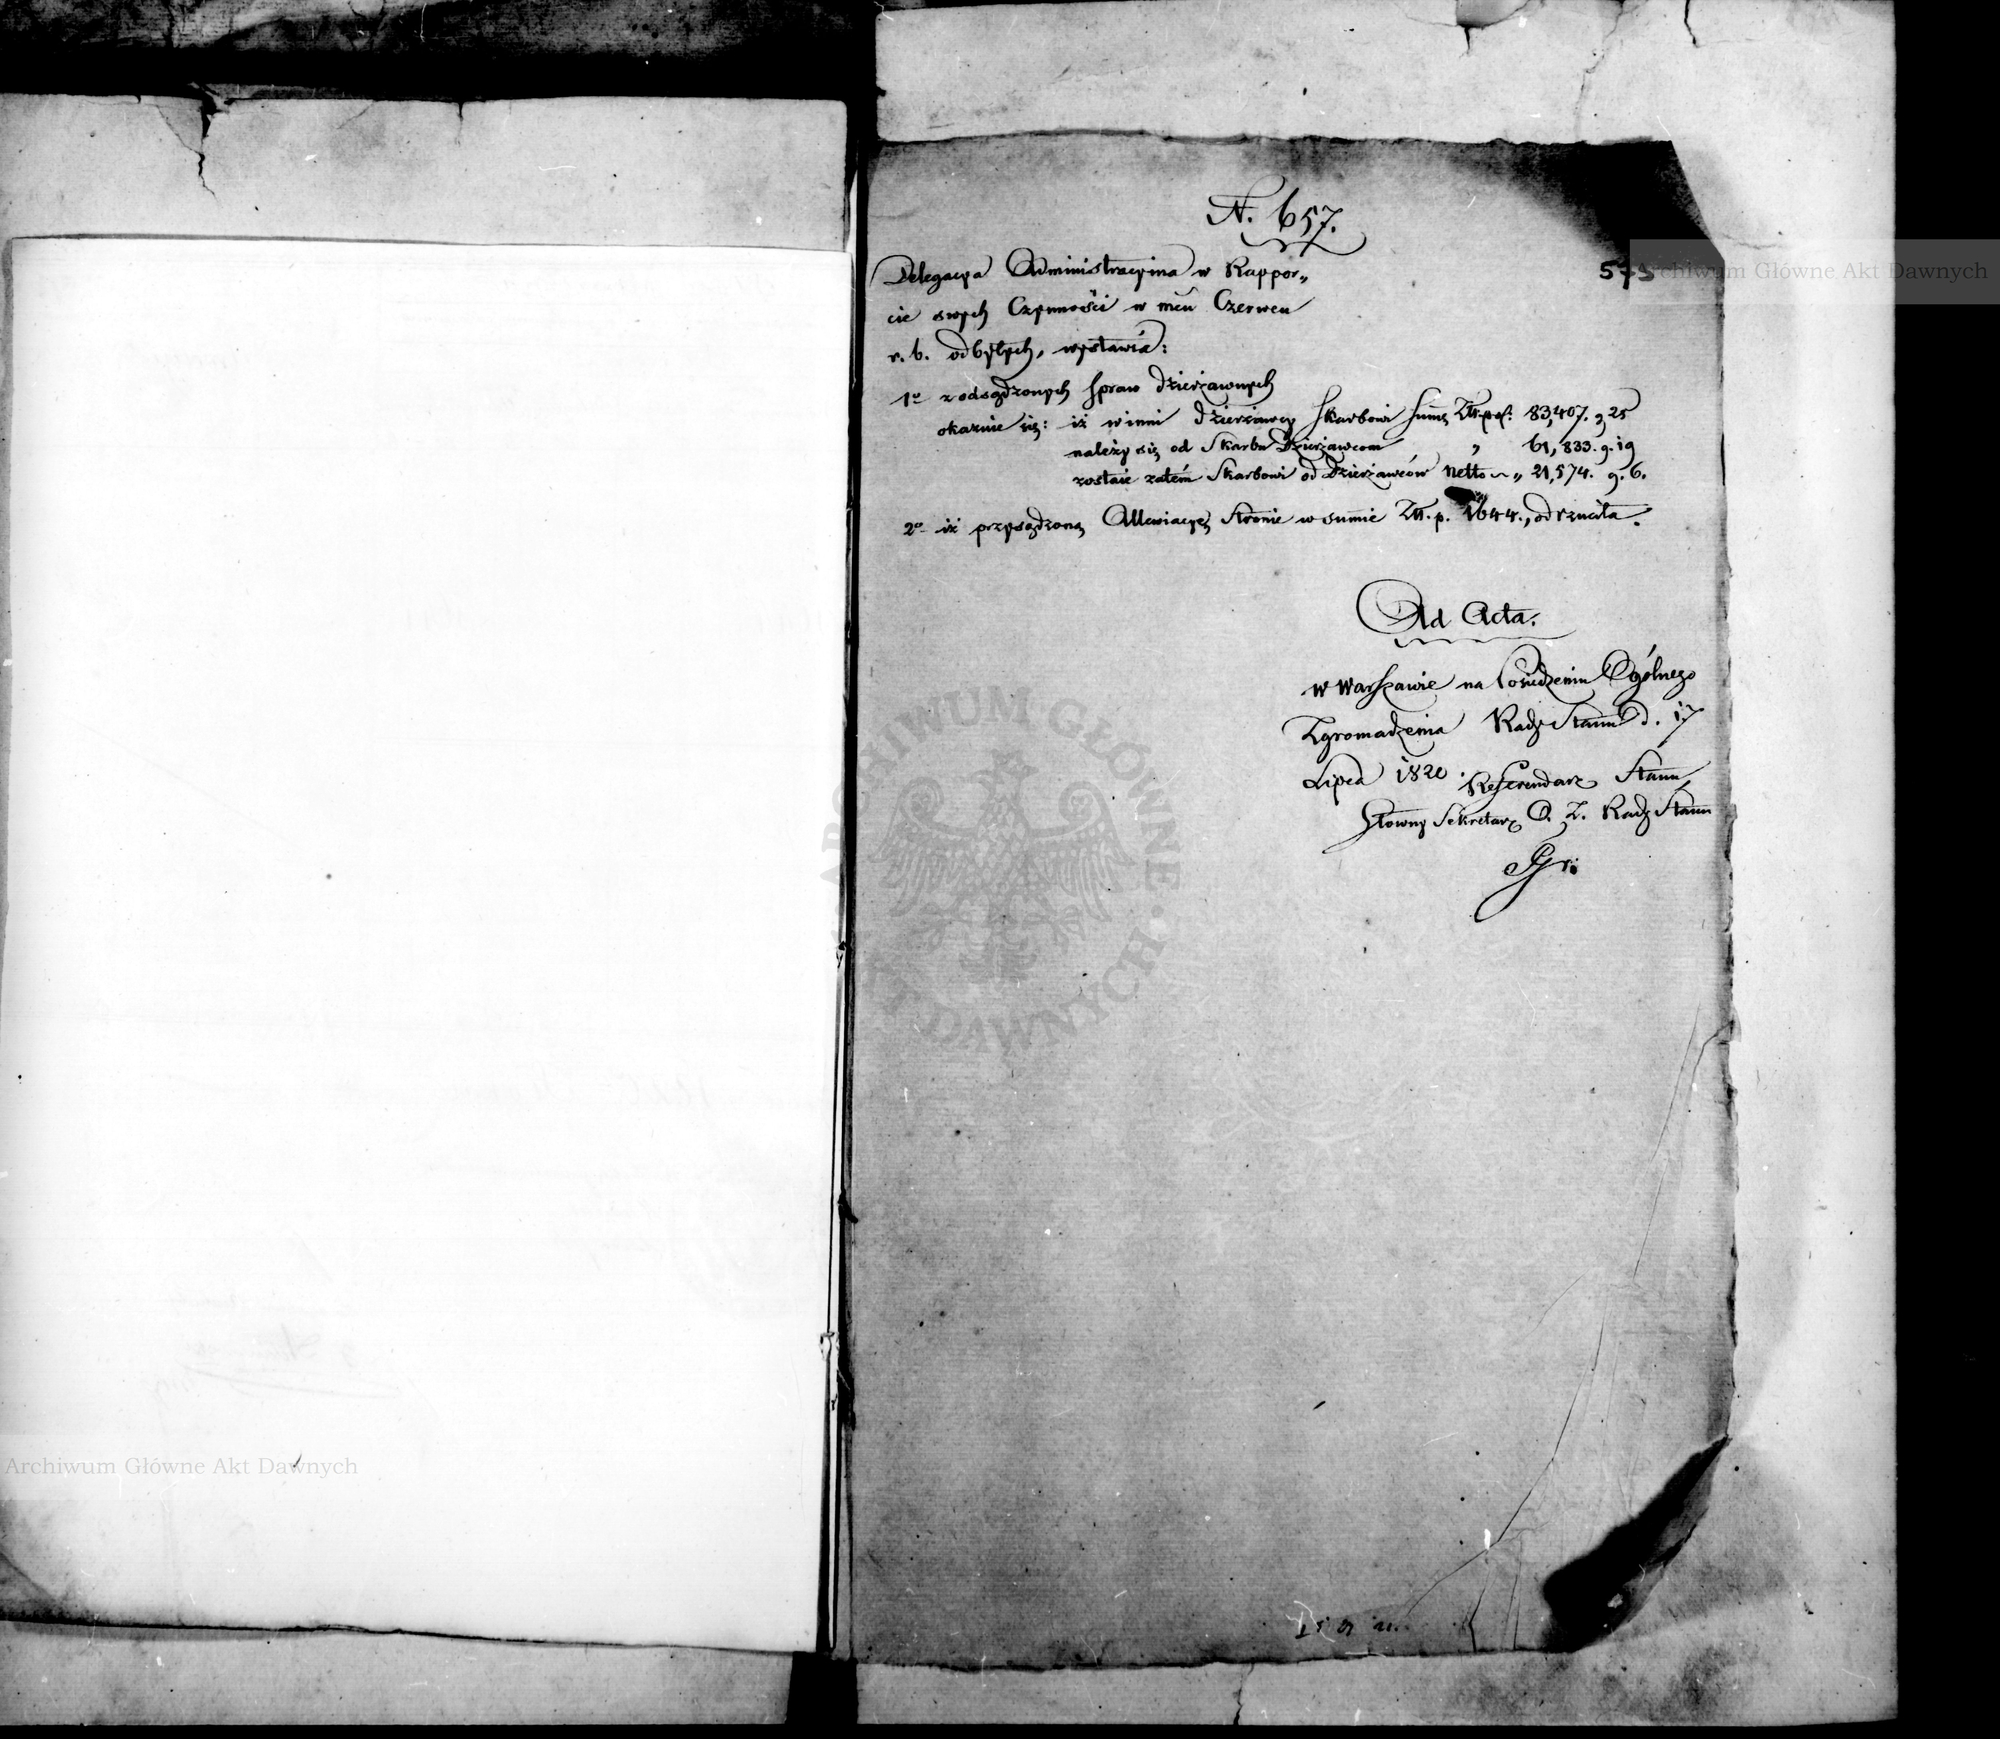 N. 657.
573
Delegacya Administracyina w Rappor„
cie swych Czynności w mcu Czerwcu
r. b. odbytych, wystawia:
1º z odsądzonych spraw dzierżawnych
okazuie się: iż winni dzierżawcy Skarbowi summę Złł.pol. 83,407. g 25
należy się od Skarbu Dzierżawcom „ 61,833. g. 19
zostaie zatém Skarbowi od Dzierżawców netto ~ „ 21,574. g. 6.
2º iż przysądzoną Allewiacyę Stronie w summie Złł. p. 1644., odrzuciła.
Ad Acta.
w Warszawie na Posiedzeniu Ogólnego
Zgromadzenia Rady Stanu d. 17
Lipca 1820. Referendarz Stanu
Główny Sekretarz O. Z. Rady Stanu
Archiwum Główne Akt Dawnych
Archiwum Główne Akt Dawnych
ARCHIWUM GŁÓWNE AKT DAWNYCH